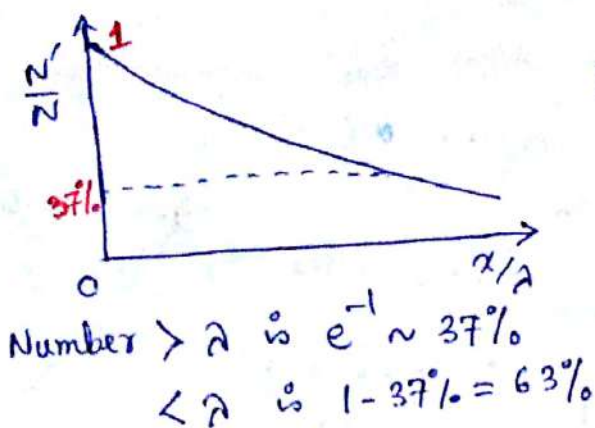 1
N'/N
37%
0
x/λ
Number > λ is e^-1 ~ 37%
< λ is 1 - 37% = 63%